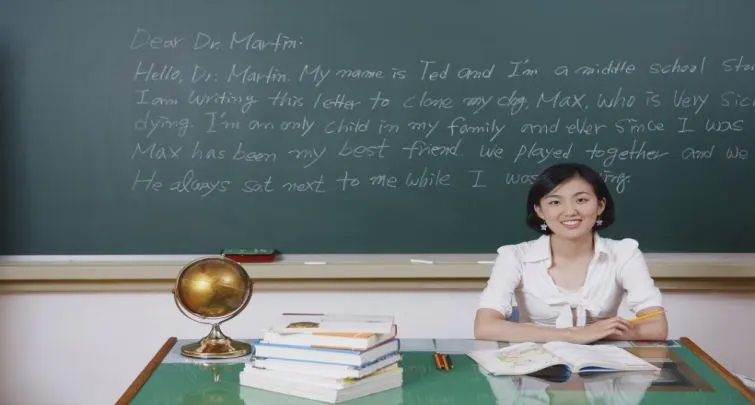 Dear Dr. Martin:
Hello, Dr. Martin. My name is Ted and I'm a middle school
I am writing this letter to clone my dog, Max, who is very sic
dying. I'm an only child in my family and ever since I was
Max has been my best friend. We played together and we
He always sat next to me while I was